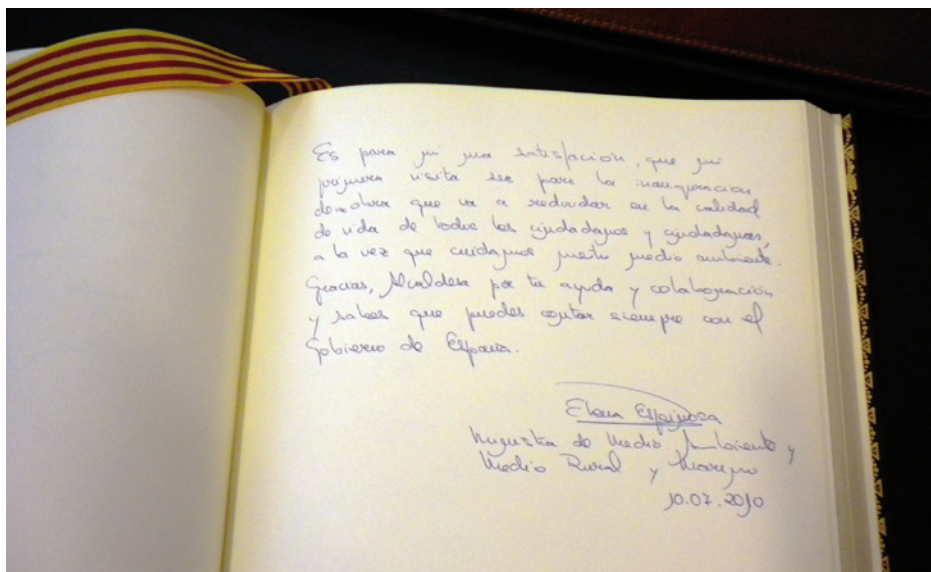 Es para mi una satisfación, que mi
primera visita sea para la inauguración
de obra que va a redundar en la calidad
de vida de todos los ciudadanos y ciudadanas,
a la vez que cuidamos nuestro medio ambiente.
Gracias, Alcaldesa por tu ayuda y colaboración
y sabes que puedes contar siempre con el
Gobierno de España.
Elena Espinosa
Ministra de Medio Ambiente y
Medio Rural y Marino
10.07.2010